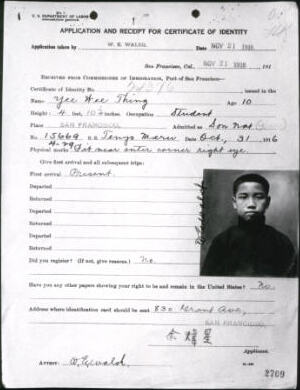 U. S. DEPARTMENT OF LABOR
APPLICATION AND RECEIPT FOR CERTIFICATE OF IDENTITY
Application taken by W. E. WALSH. Date NOV 21 1916
San Francisco, Cal. NOV 21 1916 , 191
RECEIVED FROM COMMISSIONER OF IMMIGRATION, PORT OF SAN FRANCISCO—
Certificate of Identity No. issued in the
Name: Yee Hee Thing Age 10
Height: 4 feet, 10½ inches. Occupation Student
Place SAN FRANCISCO, Admitted as Son Nat
No. 15669 ex Tenyo Maru Oct, 31 1916
4-29
Physical marks Pit near outer corner right eye.
Give first arrival and all subsequent trips:
First arrival Present.
Departed
Returned
Departed
Returned
Departed
Returned
Did you register? (If not, give reasons.) No.
Have you any other papers showing your right to be and remain in the United States? No.
Address where identification card should be sent 830 Grant Ave,
SAN FRANCISCO
Applicant.
Attest: W. Ewald
2709